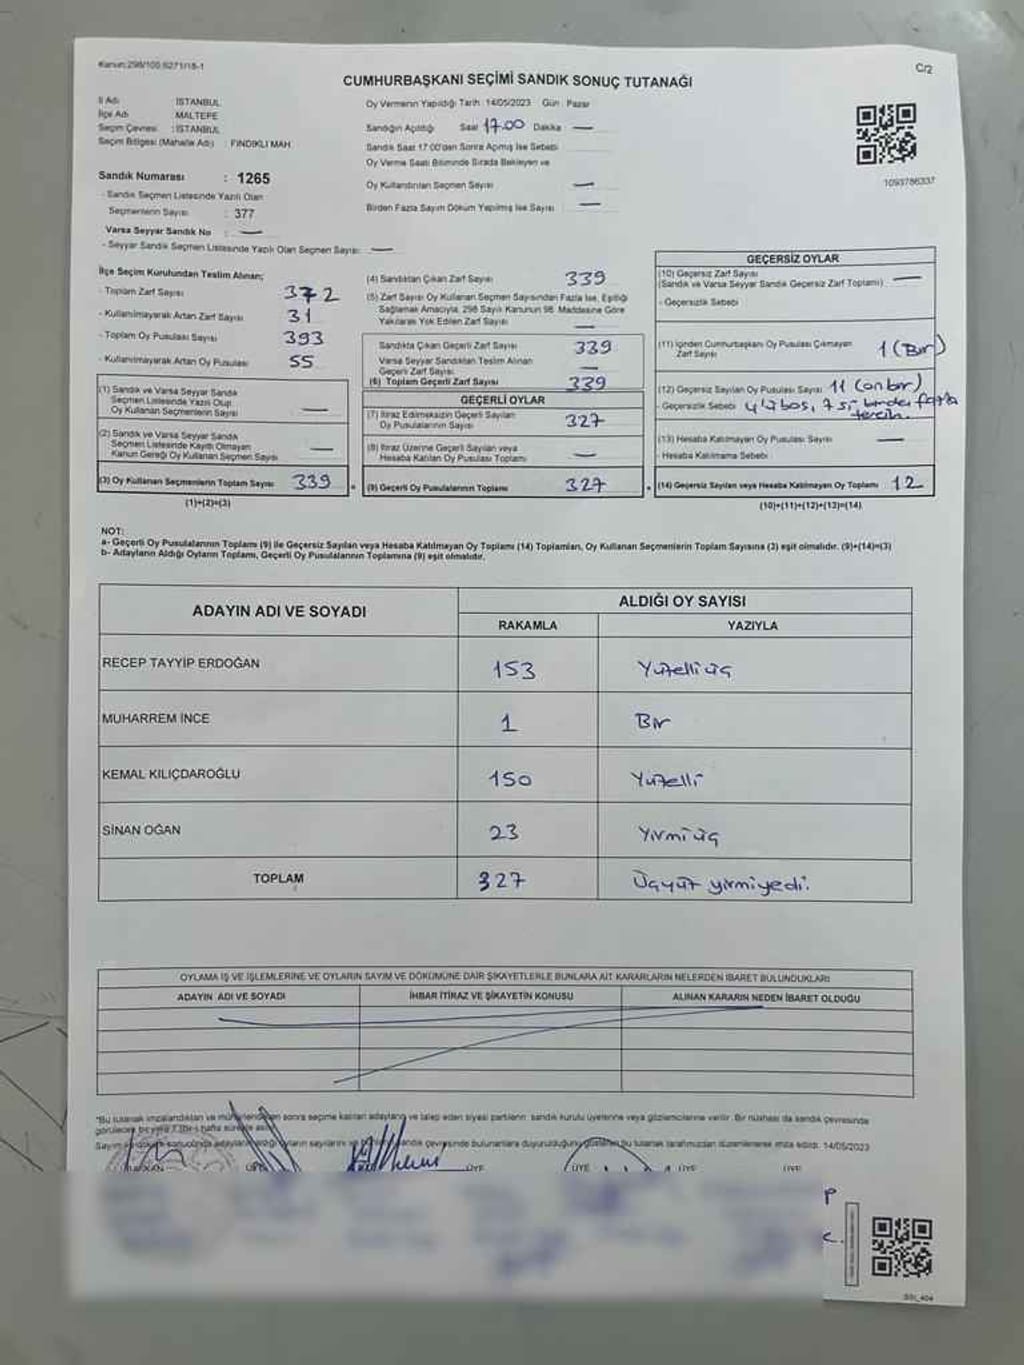 Kanun:298/100.6271/18-1
C/2
CUMHURBAŞKANI SEÇİMİ SANDIK SONUÇ TUTANAĞI
İl Adı : İSTANBUL
İlçe Adı MALTEPE
Seçim Çevresi : İSTANBUL
Seçim Bölgesi (Mahalle Adı) : FINDIKLI MAH.
Oy Vermenin Yapıldığı Tarih: 14/05/2023 Gün: Pazar
Sandığın Açıldığı Saat 17.00 Dakika —
Sandık Saat 17:00'den Sonra Açılmış İse Sebebi
Oy Verme Saati Bitiminde Sırada Bekleyen ve
Oy Kullandırılan Seçmen Sayısı —
Birden Fazla Sayım Döküm Yapılmış İse Sayısı —
1093786337
Sandık Numarası : 1265
- Sandık Seçmen Listesinde Yazılı Olan
Seçmenlerin Sayısı : 377
Varsa Seyyar Sandık No : —
- Seyyar Sandık Seçmen Listesinde Yazılı Olan Seçmen Sayısı: —
İlçe Seçim Kurulundan Teslim Alınan;
- Toplam Zarf Sayısı 372
- Kullanılmayarak Artan Zarf Sayısı 31
- Toplam Oy Pusulası Sayısı 393
- Kullanılmayarak Artan Oy Pusulası 55
(1) Sandık ve Varsa Seyyar Sandık
Seçmen Listesinde Yazılı Olup
Oy Kullanan Seçmenlerin Sayısı —
(2) Sandık ve Varsa Seyyar Sandık
Seçmen Listesinde Kaydı Olmayan
Kanun Gereği Oy Kullanan Seçmen Sayısı —
(3) Oy Kullanan Seçmenlerin Toplam Sayısı 339
(1)+(2)=(3)
(4) Sandıktan Çıkan Zarf Sayısı 339
(5) Zarf Sayısı Oy Kullanan Seçmen Sayısından Fazla İse, Eşitliği
Sağlamak Amacıyla, 298 Sayılı Kanunun 98. Maddesine Göre
Yakılarak Yok Edilen Zarf Sayısı —
Sandıkta Çıkan Geçerli Zarf Sayısı 339
Varsa Seyyar Sandıktan Teslim Alınan
Geçerli Zarf Sayısı —
(6) Toplam Geçerli Zarf Sayısı 339
GEÇERLİ OYLAR
(7) İtiraz Edilmeksizin Geçerli Sayılan
Oy Pusulalarının Sayısı 327
(8) İtiraz Üzerine Geçerli Sayılan veya
Hesaba Katılan Oy Pusulası Toplamı —
(9) Geçerli Oy Pusulalarının Toplamı 327
GEÇERSİZ OYLAR
(10) Geçersiz Zarf Sayısı —
(Sandık ve Varsa Seyyar Sandık Geçersiz Zarf Toplamı)
- Geçersizlik Sebebi
(11) İçinden Cumhurbaşkanı Oy Pusulası Çıkmayan
Zarf Sayısı 1 (Bir)
(12) Geçersiz Sayılan Oy Pusulası Sayısı 11 (onbir)
- Geçersizlik Sebebi 4'ü boş, 7'si birden fazla
tercih.
(13) Hesaba Katılmayan Oy Pusulası Sayısı —
- Hesaba Katılmama Sebebi
(14) Geçersiz Sayılan veya Hesaba Katılmayan Oy Toplamı 12
(10)+(11)+(12)+(13)=(14)
NOT:
a- Geçerli Oy Pusulalarının Toplamı (9) ile Geçersiz Sayılan veya Hesaba Katılmayan Oy Toplamı (14) Toplamları, Oy Kullanan Seçmenlerin Toplam Sayısına (3) eşit olmalıdır. (9)+(14)=(3)
b- Adayların Aldığı Oyların Toplamı, Geçerli Oy Pusulalarının Toplamına (9) eşit olmalıdır.
ADAYIN ADI VE SOYADI
ALDIĞI OY SAYISI
RAKAMLA YAZIYLA
RECEP TAYYİP ERDOĞAN 153 Yüzelliüç
MUHARREM İNCE 1 Bir
KEMAL KILIÇDAROĞLU 150 Yüzelli
SİNAN OĞAN 23 Yirmiüç
TOPLAM 327 Üçyüz yirmiyedi.
OYLAMA İŞ VE İŞLEMLERİNE VE OYLARIN SAYIM VE DÖKÜMÜNE DAİR ŞİKAYETLERLE BUNLARA AİT KARARLARIN NELERDEN İBARET BULUNDUKLARI
ADAYIN ADI VE SOYADI İHBAR İTİRAZ VE ŞİKAYETİN KONUSU ALINAN KARARIN NEDEN İBARET OLDUĞU
*Bu tutanak imzalandıktan ve mühürlendikten sonra seçime katılan adaylara ve talep eden siyasi partilerin sandık kurulu üyelerine veya gözlemcilerine verilir. Bir nüshası da sandık çevresinde
görülecek bir yere 7 (bir) hafta süreyle asılır.
sandık çevresinde bulunanlara duyurulduğunu gösteren bu tutanak tarafımızdan düzenlenerek imza edildi. 14/05/2023
BAŞKAN ÜYE ÜYE ÜYE ÜYE ÜYE